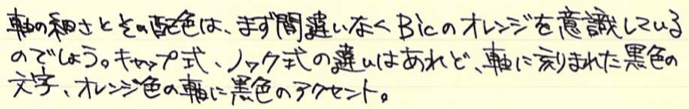 軸の細さとその配色は、まず間違いなくBicのオレンジを意識している
のでしょう。キャップ式、ノック式の違いはあれど、軸に刻まれた黒色の
文字、オレンジ色の軸に黒色のアクセント。